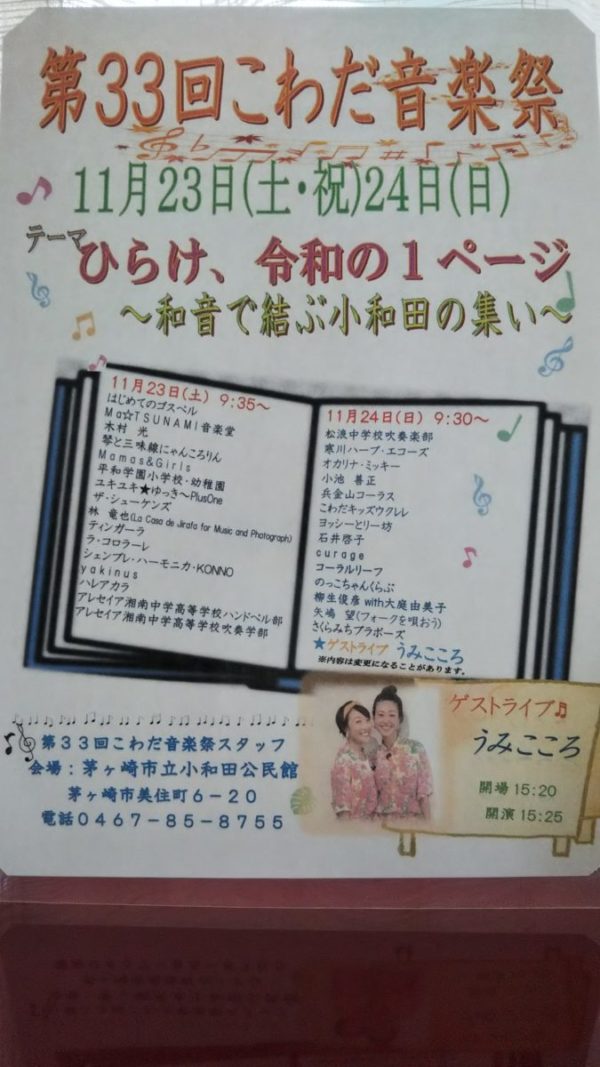 第33回こわだ音楽祭
11月23日(土・祝)24日(日)
テーマ
ひらけ、令和の１ページ
～和音で結ぶ小和田の集い～
11月23日(土) 9:35～
はじめてのゴスペル
Ma☆TSUNAMI音楽堂
木村　光
琴と三味線にゃんころりん
Mamas&Girls
平和学園小学校・幼稚園
ユキユキ★ゆっき～PlusOne
ザ・シューゲンズ
林　竜也(La Casa de Jirafa for Music and Photograph)
ティンガーラ
ラ・コロラーレ
シェンプレ・ハーモニカ・KONNO
yakinus
ハレアカラ
アレセイア湘南中学高等学校ハンドベル部
アレセイア湘南中学高等学校吹奏学部
11月24日(日) 9:30～
松浪中学校吹奏楽部
寒川ハープ・エコーズ
オカリナ・ミッキー
小池　善正
兵金山コーラス
こわだキッズウクレレ
ヨッシーとリー坊
石井啓子
curage
コーラルリーフ
のっこちゃんくらぶ
柳生俊彦with大庭由美子
矢嶋　望(フォークを唄おう)
さくらみちブラボーズ
★ゲストライブ うみこころ
※内容は変更になることがあります。
第３３回こわだ音楽祭スタッフ
会場：茅ヶ崎市立小和田公民館
茅ヶ崎市美住町６－２０
電話０４６７－８５－８７５５
ゲストライブ♬
うみこころ
開場 15:20
開演 15:25